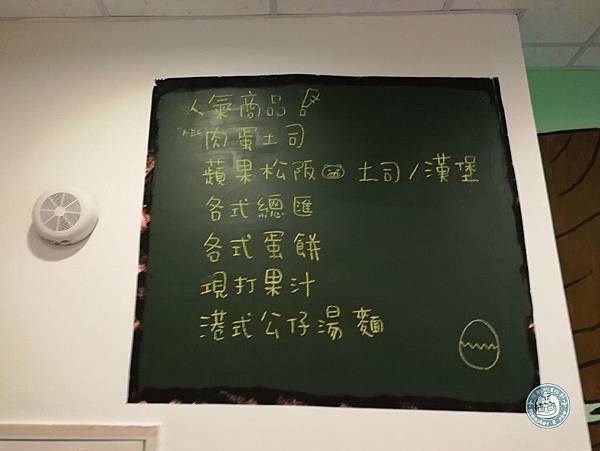 人氣商品
肉蛋土司
蘋果松阪 土司/漢堡
各式總匯
各式蛋餅
現打果汁
港式公仔湯麵